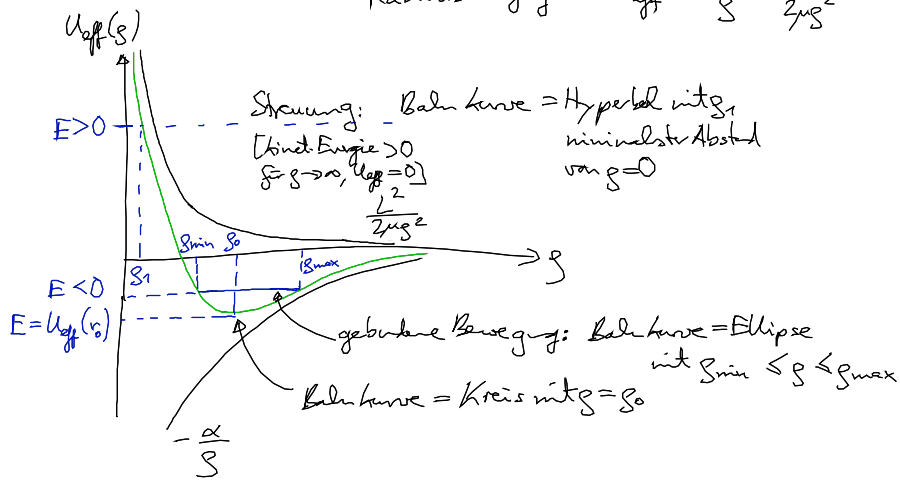 U_eff(ρ)
2μρ²
E>0
Streuung: Bahnkurve = Hyperbel mit ρ₁
minimalster Abstad
von ρ=0
[kinet. Energie >0
für ρ→∞, U_eff=0]
L²/2μρ²
ρ_min ρ₀ ρ_max
ρ₁
ρ
E<0
E=U_eff(r₀)
gebundene Bewegung: Bahnkurve = Ellipse
mit ρ_min ≤ ρ ≤ ρ_max
Bahnkurve = Kreis mit ρ=ρ₀
-α/ρ